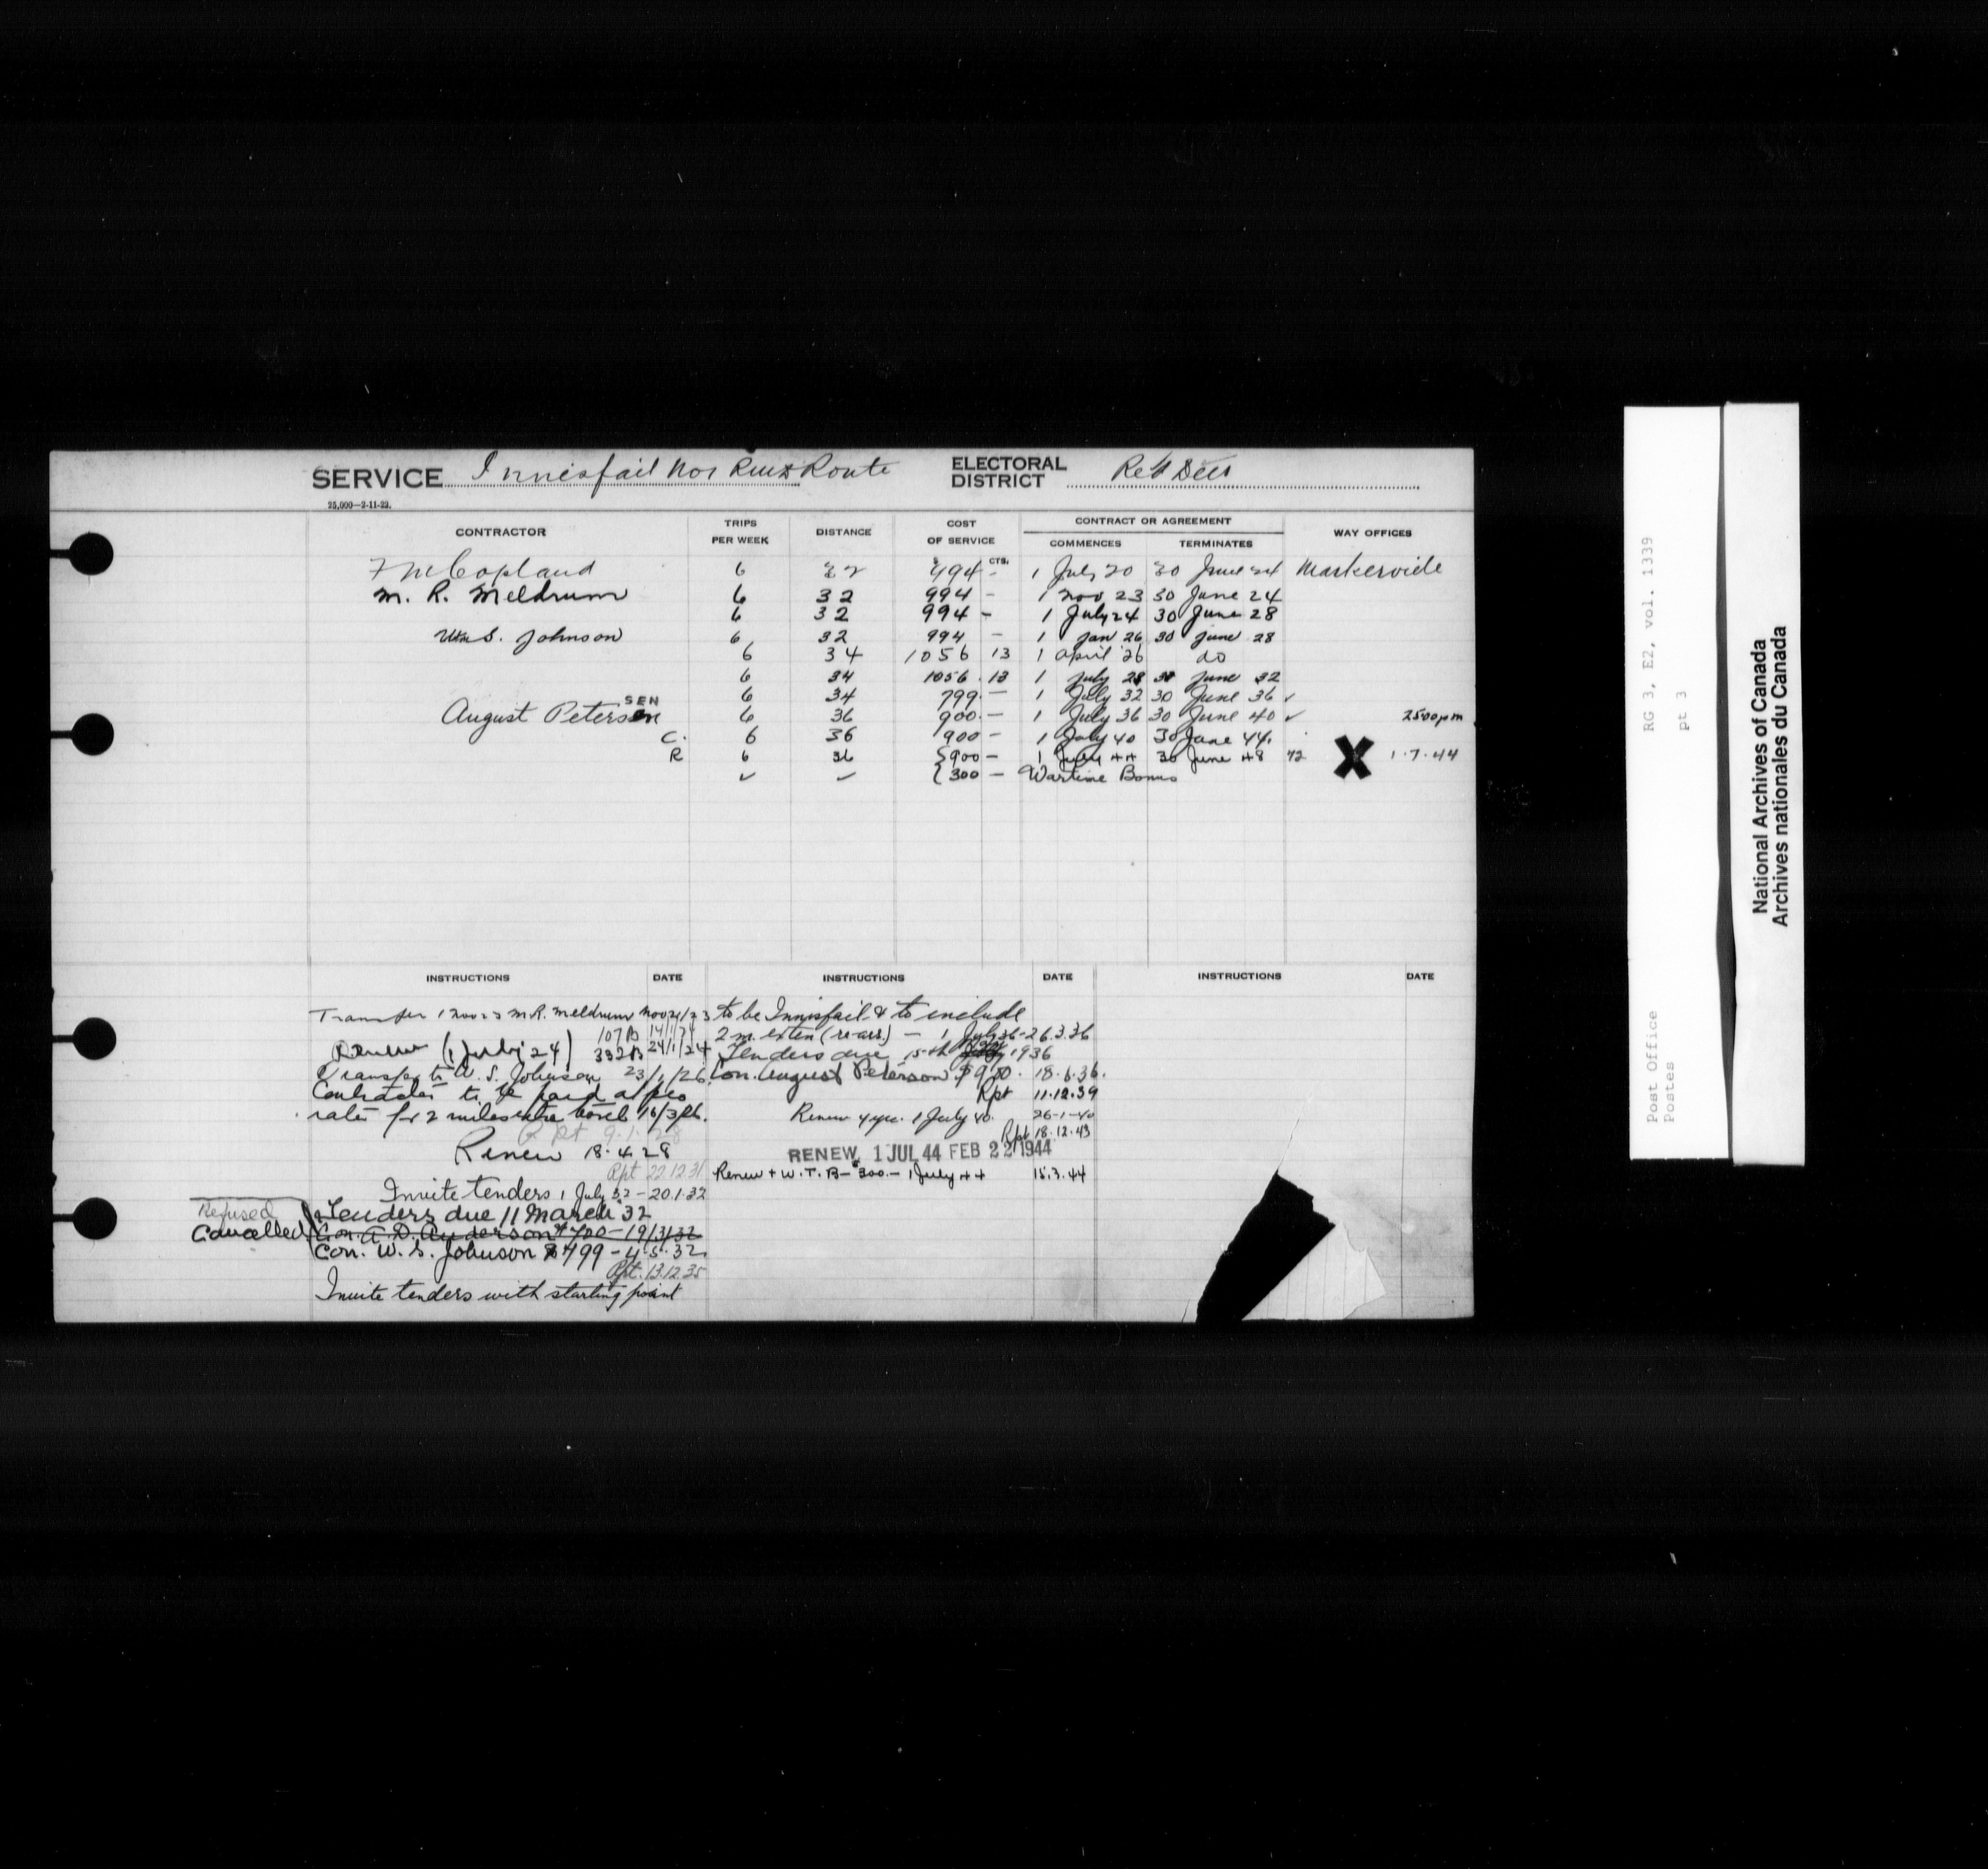 SERVICE Innisfail No 1 Rural Route ELECTORAL DISTRICT Red Deer
25,000—2-11-22.
CONTRACTOR TRIPS PER WEEK DISTANCE COST OF SERVICE CONTRACT OR AGREEMENT COMMENCES TERMINATES WAY OFFICES
$ CTS.
Copland 6 994 - 1 July 20 30 June 24 Markerville
M. R. Meldrum 6 32 994 - 1 Nov 23 30 June 24
6 32 994 - 1 July 24 30 June 28
Wm S. Johnson 6 32 994 - 1 Jan 26 30 June 28
6 34 1056 13 1 April 26 do
6 34 1056 13 1 July 28 30 June 32
6 34 799 - 1 July 32 30 June 36 ✓
August Petersen SEN 6 36 900 - 1 July 36 30 June 40 ✓ 2500pm
C. 6 36 900 - 1 July 40 30 June 44.
R 6 36 {900 - 1 July 44 30 June 48 72 X 1.7.44
✓ ✓ {300 - Wartime Bonus
INSTRUCTIONS DATE INSTRUCTIONS DATE INSTRUCTIONS DATE
Transfer 1 Nov 23 M.R. Meldrum Nov 21/23
107B 14/1/24
Renew (1 July 24) 332B 24/1/24
Transfer to W. S. Johnson 23/1/26
Contractor to be paid at pro
rate for 2 miles extra travel 16/3/26.
Rpt 9.1.28
Renew 18.4.28
Rpt 22.12.31
Invite tenders 1 July 32 - 20.1.32
Tenders due 11 March 32
Refused
Cancelled Con. A. D. Anderson $700 - 19/3/32
Con. W. S. Johnson $799 - 4.5.32
Rpt. 13.12.35
Invite tenders with starting point
to be Innisfail & to include
2 m. exten (re-arr) - 1 July 36 - 26.3.36
Tenders due 15th May 1936
Con. August Peterson $900. 18.6.36.
Rpt 11.12.39
Renew 4 yrs. 1 July 40. 26-1-40
Rpt 18.12.43
RENEW 1 JUL 44 FEB 22 1944
Renew + W.T.B - $300.- 1 July 44 15.3.44
RG 3, E2, vol. 1339
pt 3
Post Office
Postes
National Archives of Canada
Archives nationales du Canada